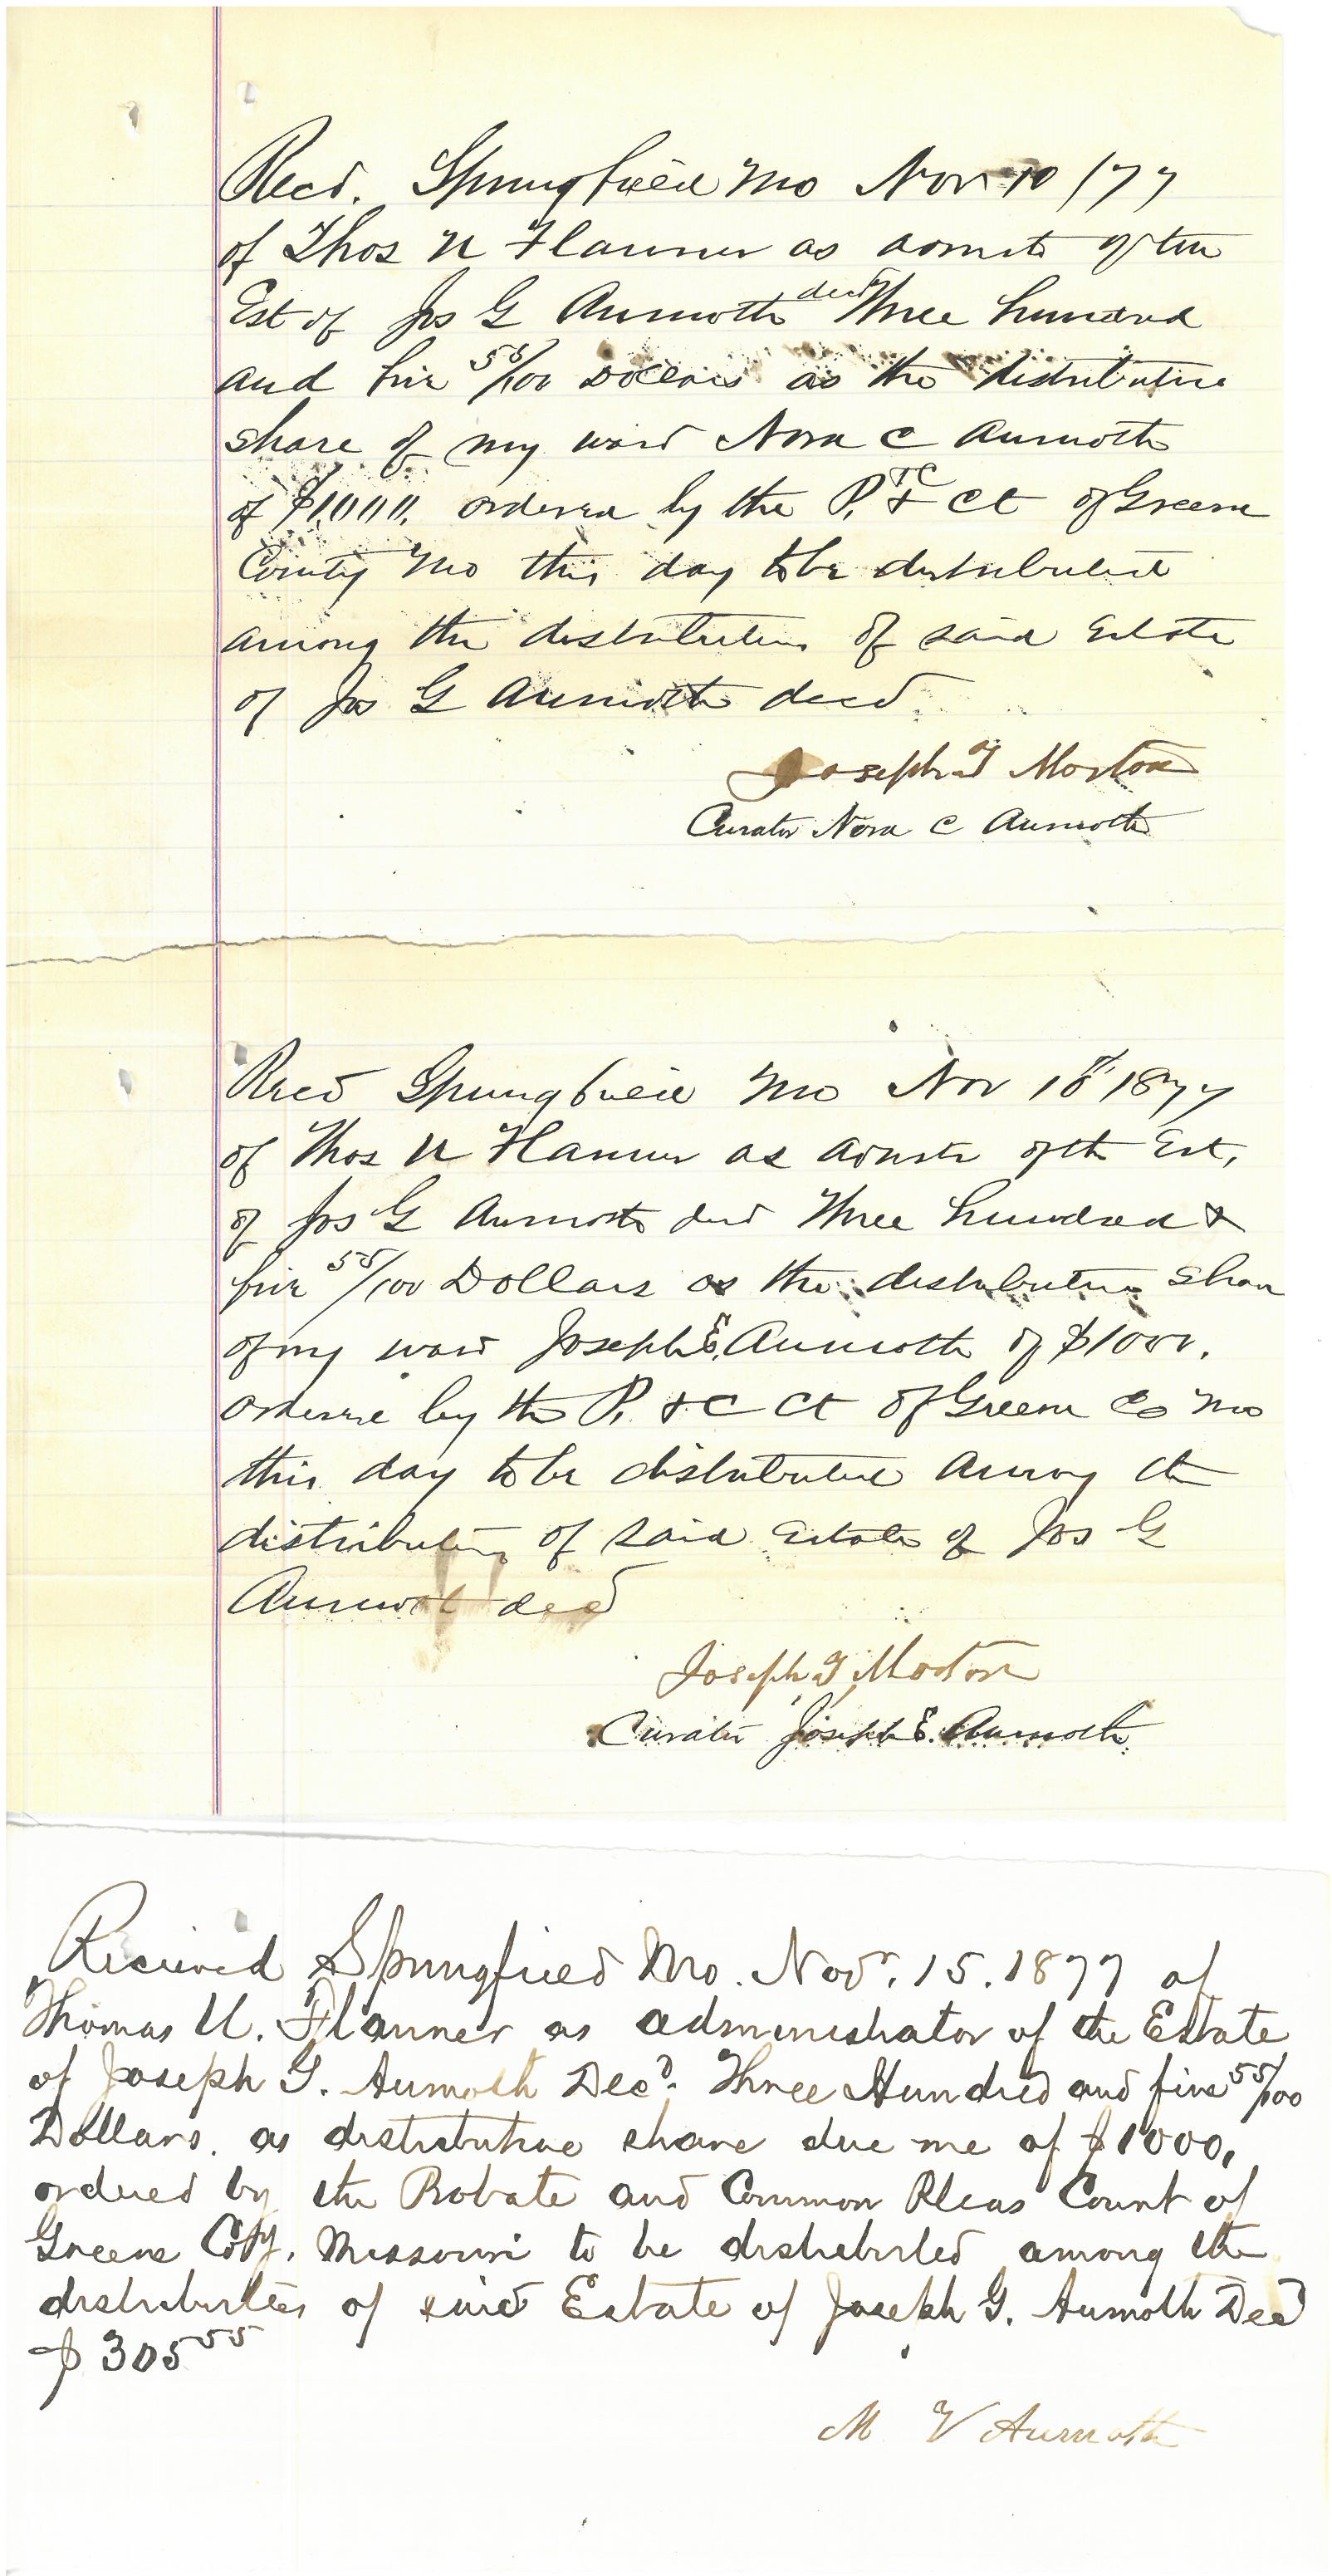 Recd. Springfield Mo Nov 10 /77
of Thos U Flanner as admstr of the
Est of Jos G Aumoth decd Three hundred
and five 55/100 Dollars as the distributive
share of my ward Nora C Aumoth
of $1000. ordered by the P. & C Ct of Greene
County Mo this day to be distributed
among the distributees of said Estate
of Jos G Aumoth decd.
Joseph T Morton
Curator Nora C Aumoth
Recd Springfield Mo Nov 10th 1877
of Thos U Flanner as admstr of the Est,
of Jos G Aumoth decd Three hundred &
five 55/100 Dollars as the distributive share
of my ward Joseph E. Aumoth of $1000.
ordered by the P. & C Ct of Greene Co Mo
this day to be distributed among the
distributees of said Estate of Jos G
Aumoth decd
Joseph T Morton
Curator Joseph E. Aumoth
Received Springfield Mo. Novr. 15. 1877 of
Thomas U. Flanner as administrator of the Estate
of Joseph G. Aumoth Decd. Three Hundred and five 55/100
Dollars. as distributive share due me of $1000,
ordered by the Probate and Common Pleas Court of
Greene Coty. Missouri to be distributed among the
distributees of said Estate of Joseph G. Aumoth Decd
$305 55
M V Aumoth